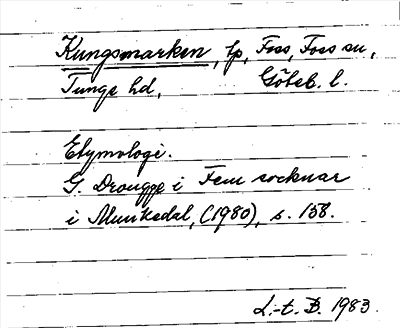 Kungsmarken, tp, Foss, Foss sn,
Tunge hd, Göteb. l.
Etymologi.
G. Drougge i Fem socknar
i Munkedal, (1980), s. 158.
L.-t. B. 1983.